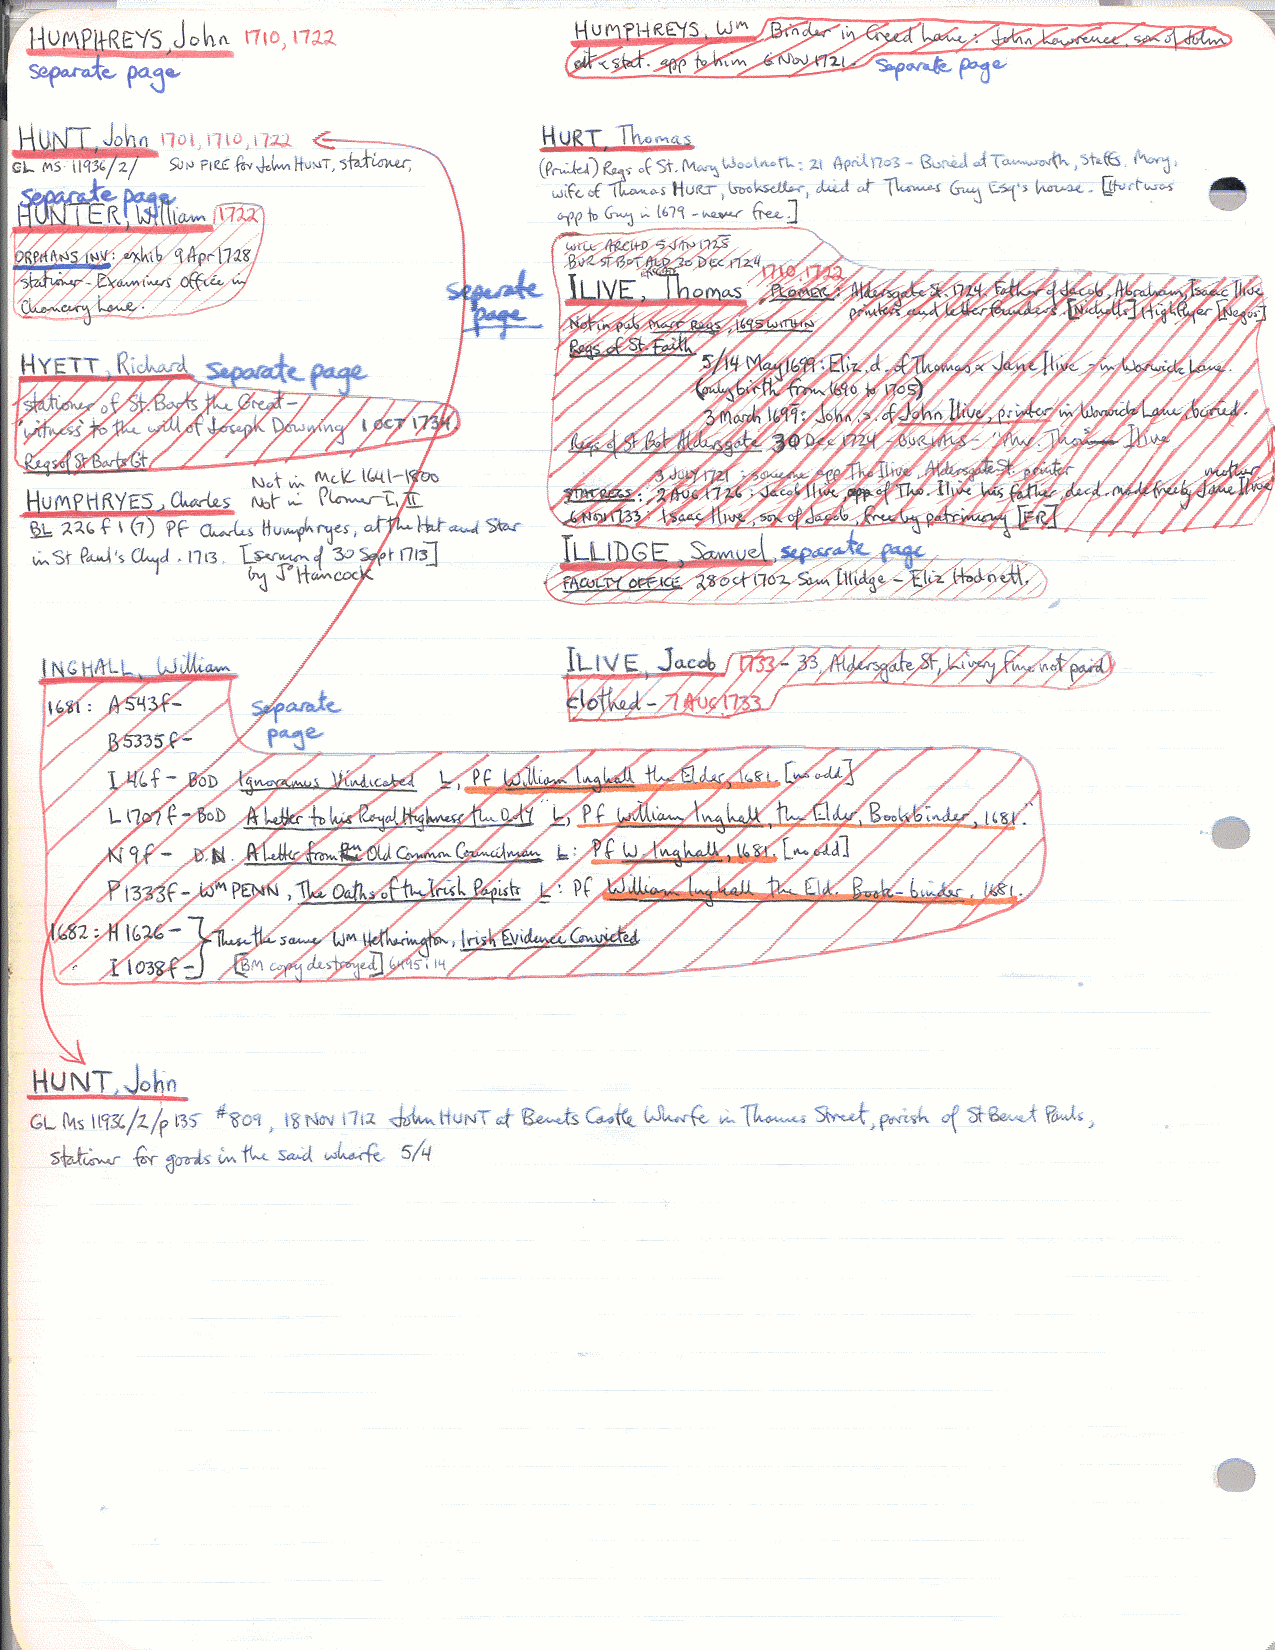 HUMPHREYS, John 1710, 1722
separate page
HUMPHREYS, Wm Binder in Creed Lane: John Lawrence, son of John
cit & stat. app to him 6 Nov 1721. separate page
HUNT, John 1701, 1710, 1722
GL MS 11936/2/ SUN FIRE for John HUNT, stationer,
separate page
HUNTER, William 1722
ORPHANS INV: exhib 9 Apr 1728
stationer - Examiners Office in
Chancery Lane.
HYETT, Richard separate page
stationer of St. Barts the Great -
'witness' to the will of Joseph Downing 1 OCT 1734.
Regs of St Barts Gt
HUMPHRYES, Charles Not in McK 1641-1800
Not in Plomer I, II
BL 226 f 1 (7) PF Charles Humphryes, at the Hat and Star
in St Paul's Chyd. 1713. [sermon of 30 Sept 1713]
by Jo Hancock
HURT, Thomas
(Printed) Regs of St. Mary Woolnoth: 21 April 1703 - Buried at Tamworth, Staffs. Mary,
wife of Thomas HURT, bookseller, died at Thomas Guy Esq's house. [Hurt was
app to Guy in 1679 - never free.]
WILL ARCHD 5 JAN 1725
BUR ST BOT ALD 30 DEC 1724
separate page
ILIVE, Thomas 1710, 1722 PLOMER: Aldersgate St. 1724. Father of Jacob, Abraham, Isaac Ilive
printers and letter founders. [Nicholls] Highflyer [Negus]
Not in pub Marr Regs, 1695 WITHIN
Regs of St. Faith
5/14 May 1699: Eliz. d. of Thomas & Jane Ilive - in Warwick Lane.
(only birth from 1690 to 1705)
3 March 1699: John, s. of John Ilive, printer in Warwick Lane, buried.
Regs of St Bot Aldersgate 30 Dec 1724 - BURIALS - "Mr. Thos Ilive
3 JULY 1721: someone app Tho Ilive, Aldersgate St. printer
STAT REGS: 2 AUG 1726: Jacob Ilive, app of Tho. Ilive his father, decd. made free by Jane Ilive mother
6 NOV 1733: Isaac Ilive, son of Jacob, free by patrimony [ER]
ILLIDGE, Samuel, separate page
FACULTY OFFICE 28 Oct 1702 Sam Illidge - Eliz Hodnett.
ILIVE, Jacob 1733 - 33, Aldersgate St, Livery fine not paid
clothed - 7 AUG 1733
INGHALL, William
separate page
1681: A543f-
B5335f-
I 46f - BOD Ignoramus Vindicated L, Pf William Inghall the Elder, 1681. [no add]
L1707f - BOD A Letter to his Royal Highness the D of Y L, Pf William Inghall, the Elder, Bookbinder, 1681.
N9f - D.N. A Letter from an Old Common Councilman L: Pf W. Inghall, 1681. [no add]
P1333f - Wm PENN, The Oaths of the Irish Papists L: Pf William Inghall the Eld. Book-binder, 1681.
1682: H1626 - } These the same Wm Hetherington, Irish Evidence Convicted
I 1038f - [BM copy destroyed] 6495 i 14
HUNT, John
GL Ms 11936/2/p 135 #809, 18 Nov 1712 John HUNT at Benets Castle Wharfe in Thames Street, parish of St Benet Pauls,
stationer for goods in the said wharfe 5/4